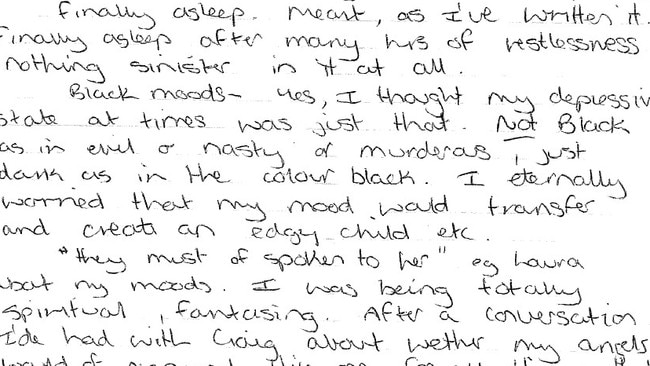 finally asleep. Meant, as I've written it.
Finally asleep after many hrs of restlessness
nothing sinister in it at all.
Black moods- yes, I thought my depressiv
state at times was just that. Not Black
as in evil or nasty or murderas, just
dark as in the colour black. I eternally
worried that my mood would transfer
and create an edgy child etc.
"they must of spoken to her" eg Laura
bout my moods. I was being totally
spiritual, fantasing. After a conversation
I'de had with Craig about wether my angels